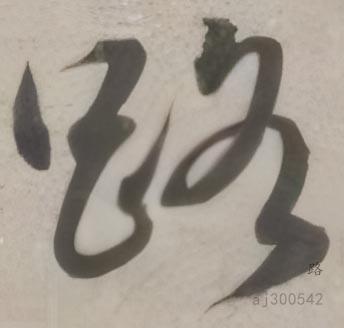 路
路
aj300542